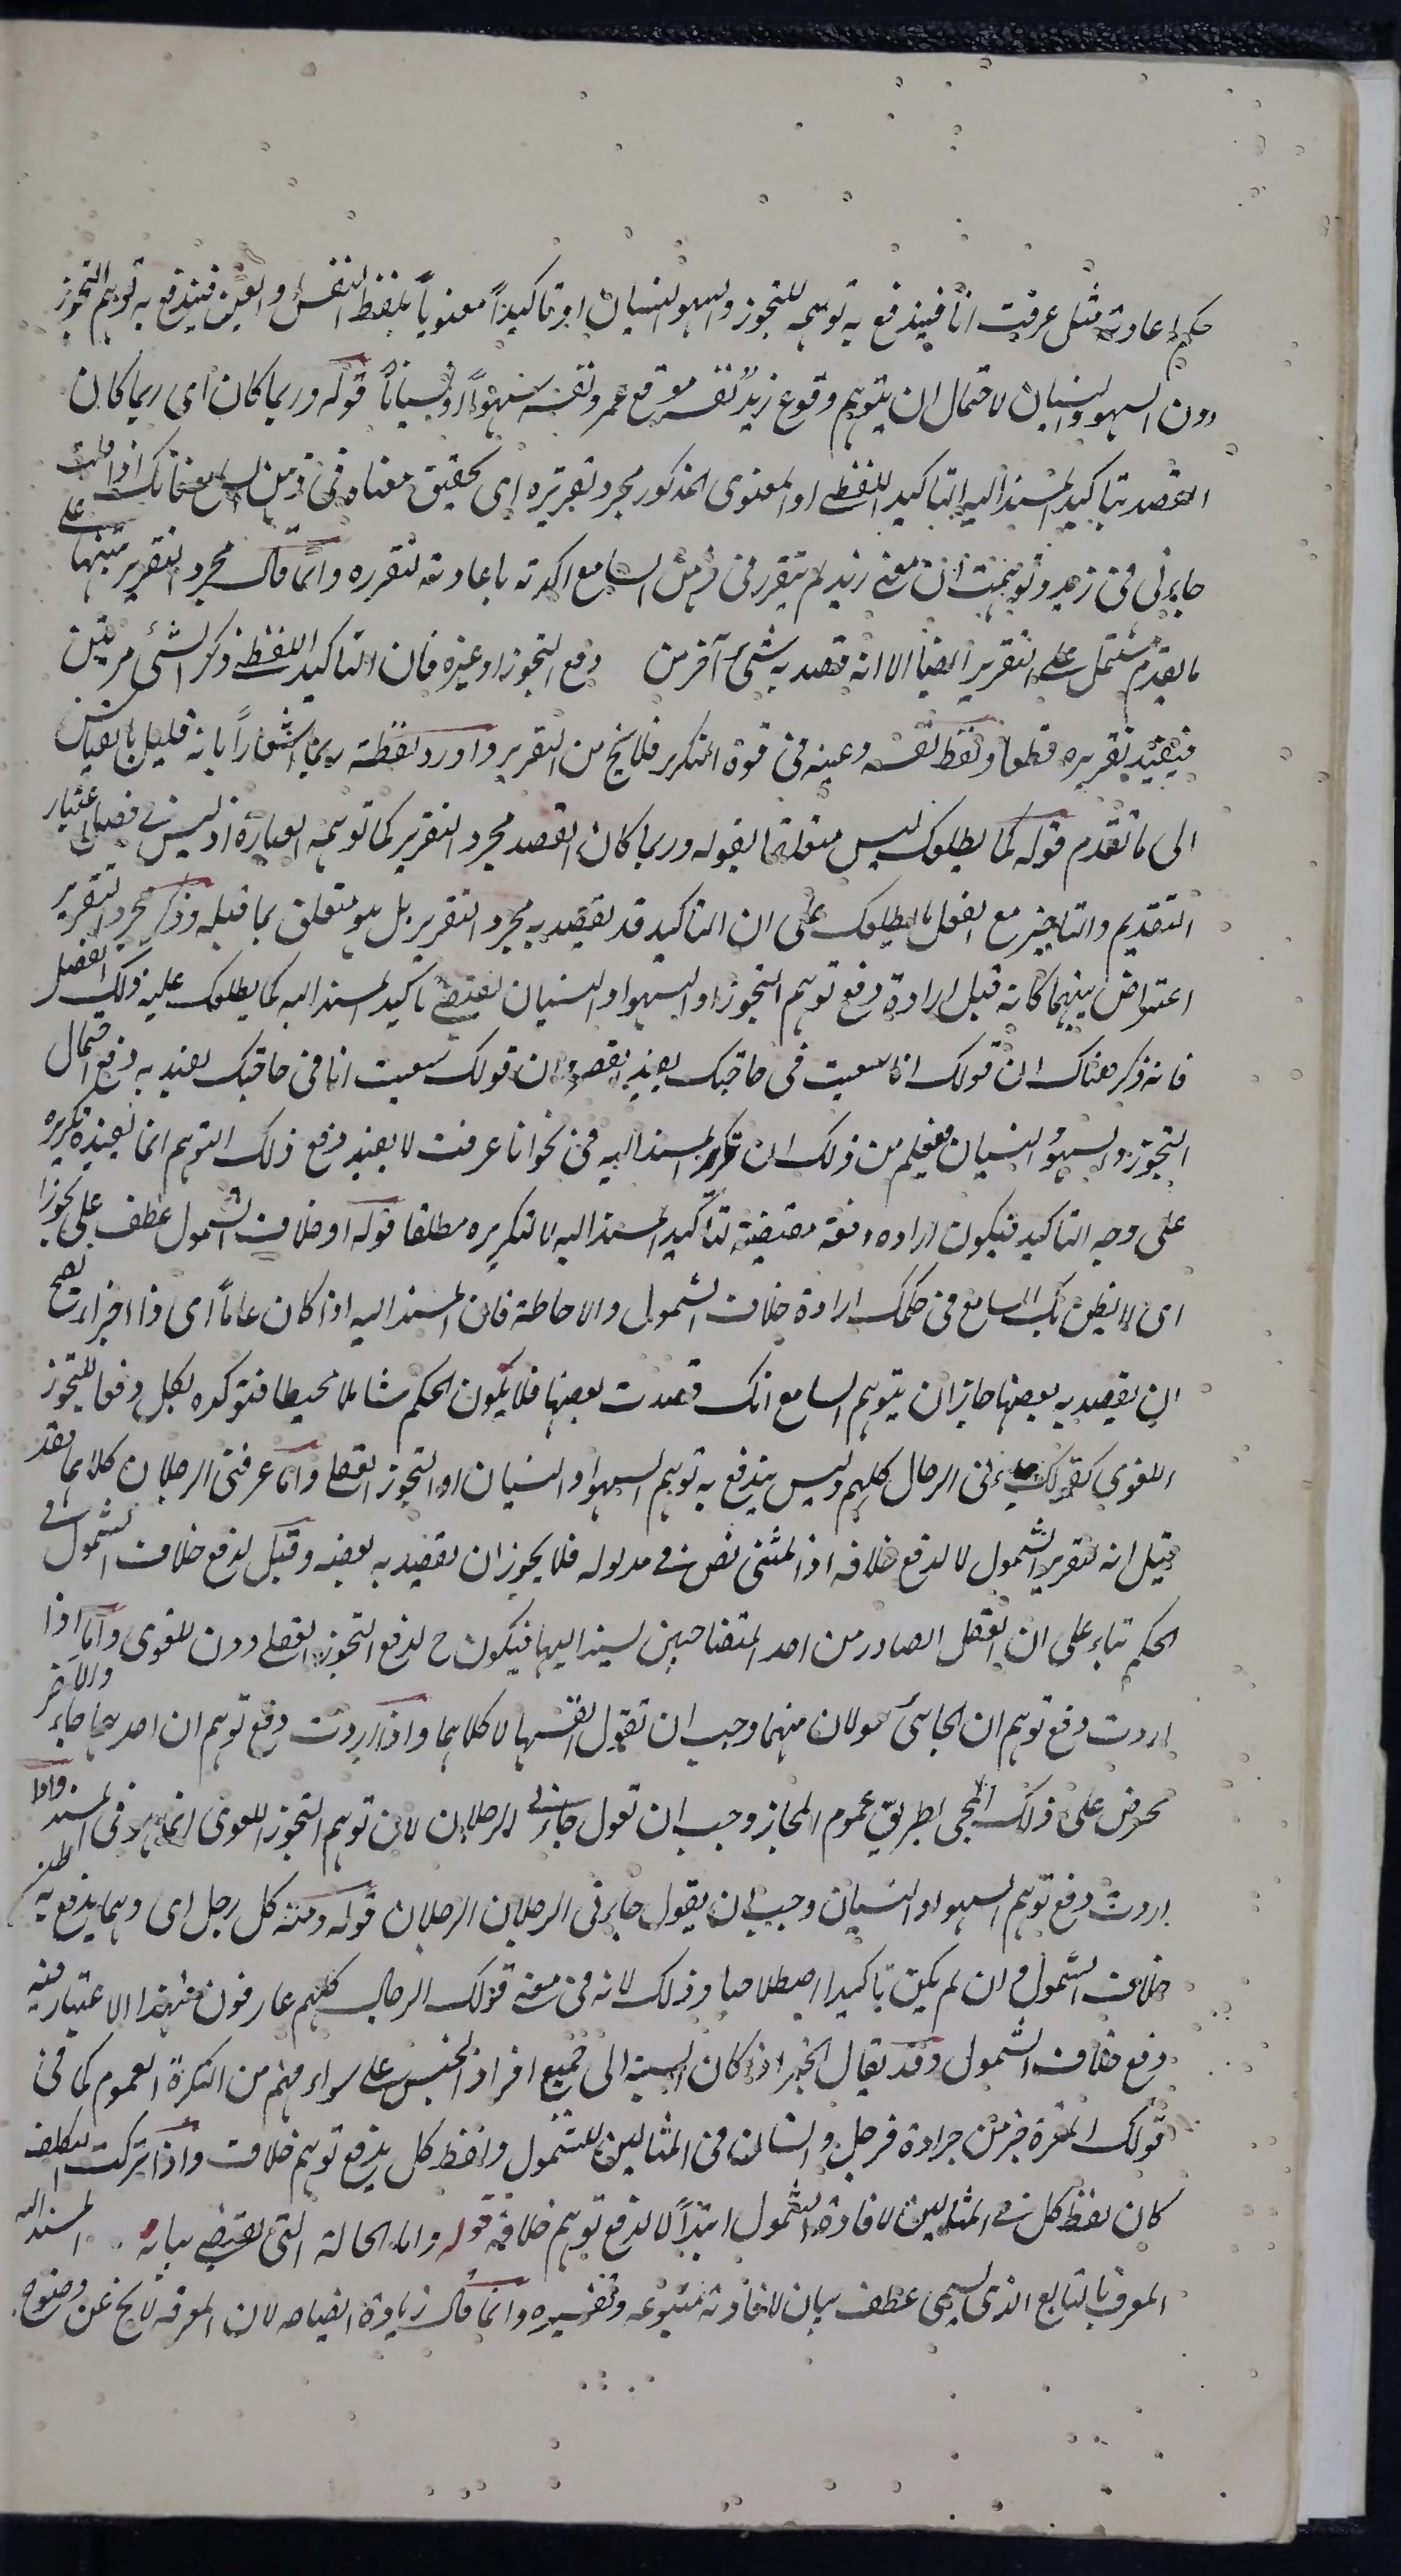 حكم اعادته مثل عرفت انا فيندفع به توهمه للتجوز والسهو والنسيان او تاكيداً معنوياً بلفظ النفس والعين فيندفع به توهم التجوز
دون السهو والنسيان لاحتمال ان يتوهم وقوع زيد نفسه موقع عمرو نفسه سهواً او نسياناً قوله وربما كان اى ربما كان
القصد بتاكيد المسند اليه التاكيد اللفظى او المعنوى المذكور مجرد تقريره اى تحقيق معناه فى ذهن السامع فانك اذا قلت
جاءنى زيد وتوهمت ان معنى زيد لم يتقرر فى ذهن السامع اكدته باعادته لتقرره وانما قال مجرد التقرير تنبيها على
ما تقدم مشتمل على التقرير ايضا الا انه قصد به شئ آخر من دفع التجوز او غيره فان التاكيد اللفظى ذكر الشئ مرتين
فيفيد تقريره قطعا ولفظ نفسه وعينه فى قوة المتكرر فلا يخ من التقرير واورد لفظة ربما اشعاراً بانه قليل بالقياس
الى ما تقدم قوله كما يطلعك ليس متعلقا بقوله وربما كان القصد مجرد التقرير كما توهمه العبارة اذ ليس فى فصل اعتبار
التقديم والتاخير مع الفعل ما يطلعك على ان التاكيد قد يقصد به مجرد التقرير بل هو متعلق بما قبله وذكر مجرد التقرير
اعتراض بينهما كانه قيل ارادة دفع توهم التجوز او السهو او النسيان يقتضى تاكيد المسند اليه كما يطلعك عليه ذلك الفصل
فانه ذكر هناك ان قولك انا سعيت فى حاجتك يفيد القصر وان قولك سعيت انا فى حاجتك يفيد به دفع احتمال
التجوز والسهو والنسيان فعلم من ذلك ان تكرر المسند اليه فى نحو انا عرفت لا يفيد دفع ذلك التوهم انما يفيده تكريره
على وجه التاكيد فيكون ارادة دفعه مقتضية لتاكيد المسند اليه لا لتكريره مطلقا قوله او خلاف الشمول عطف على تجوزا
اى لا يظن بك السامع فى حكمك ارادة خلاف الشمول والاحاطة فان المسند اليه اذا كان عاماً اى ذا اجزاء يصح
ان يقصد به بعضها جاز ان يتوهم السامع انك قصدت بعضها فلا يكون الحكم شاملا محيطا فتوكده بكل دفعا للتجوز
اللغوى كقولك جاءنى الرجال كلهم وليس يندفع به توهم السهو او النسيان او التجوز العقلى واما عرفنى الرجلان كلاهما فقد
قيل انه لتقرير الشمول لا لدفع خلافه اذ المثنى نص فى مدلوله فلا يجوز ان يقصد به بعضه وقيل لدفع خلاف الشمول فى
الحكم بناء على ان الفعل الصادر من احد المتصاحبين يسند اليهما فيكون ح لدفع التجوز العقلى دون اللغوى واما اذا
اردت دفع توهم ان الجائى رسولان منهما وجب ان تقول انفسهما لا كلاهما واذا اردت دفع توهم ان احدهما جاء والآخر
محرض على ذلك المجئ بطريق عموم المجاز وجب ان تقول جاءنى الرجلان لان توهم التجوز اللغوى انما هو فى المسند واذا
اردت دفع توهم السهو او النسيان وجب ان يقول جاءنى الرجلان الرجلان قوله ومنه كل رجل اى ومما يدفع به ظن
خلاف الشمول وان لم يكن تاكيدا اصطلاحيا وذلك لانه فى معنى قولك الرجال كلهم عارفون فبهذا الاعتبار فيه
دفع خلاف الشمول وقد يقال الخبر اذا كان النسبة الى جميع افراد الجنس على سواء فهم من النكرة العموم كما فى
قولك التمرة خير من جرادة فرجل وانسان فى المثالين للشمول ولفظ كل يدفع توهم خلافه واذا تركت التكلف
كان لفظ كل فى المثالين لافادة الشمول ابتداً لا لدفع توهم خلافه قوله واما الحالة التى يقتضى بيانه المسند اليه
المعرف بالتابع الذى يسمى عطف بيان لافادته متبوعه وتفسيره وانما قال زيادة ايضاحه لان المعرفه لا يخ عن وضوح